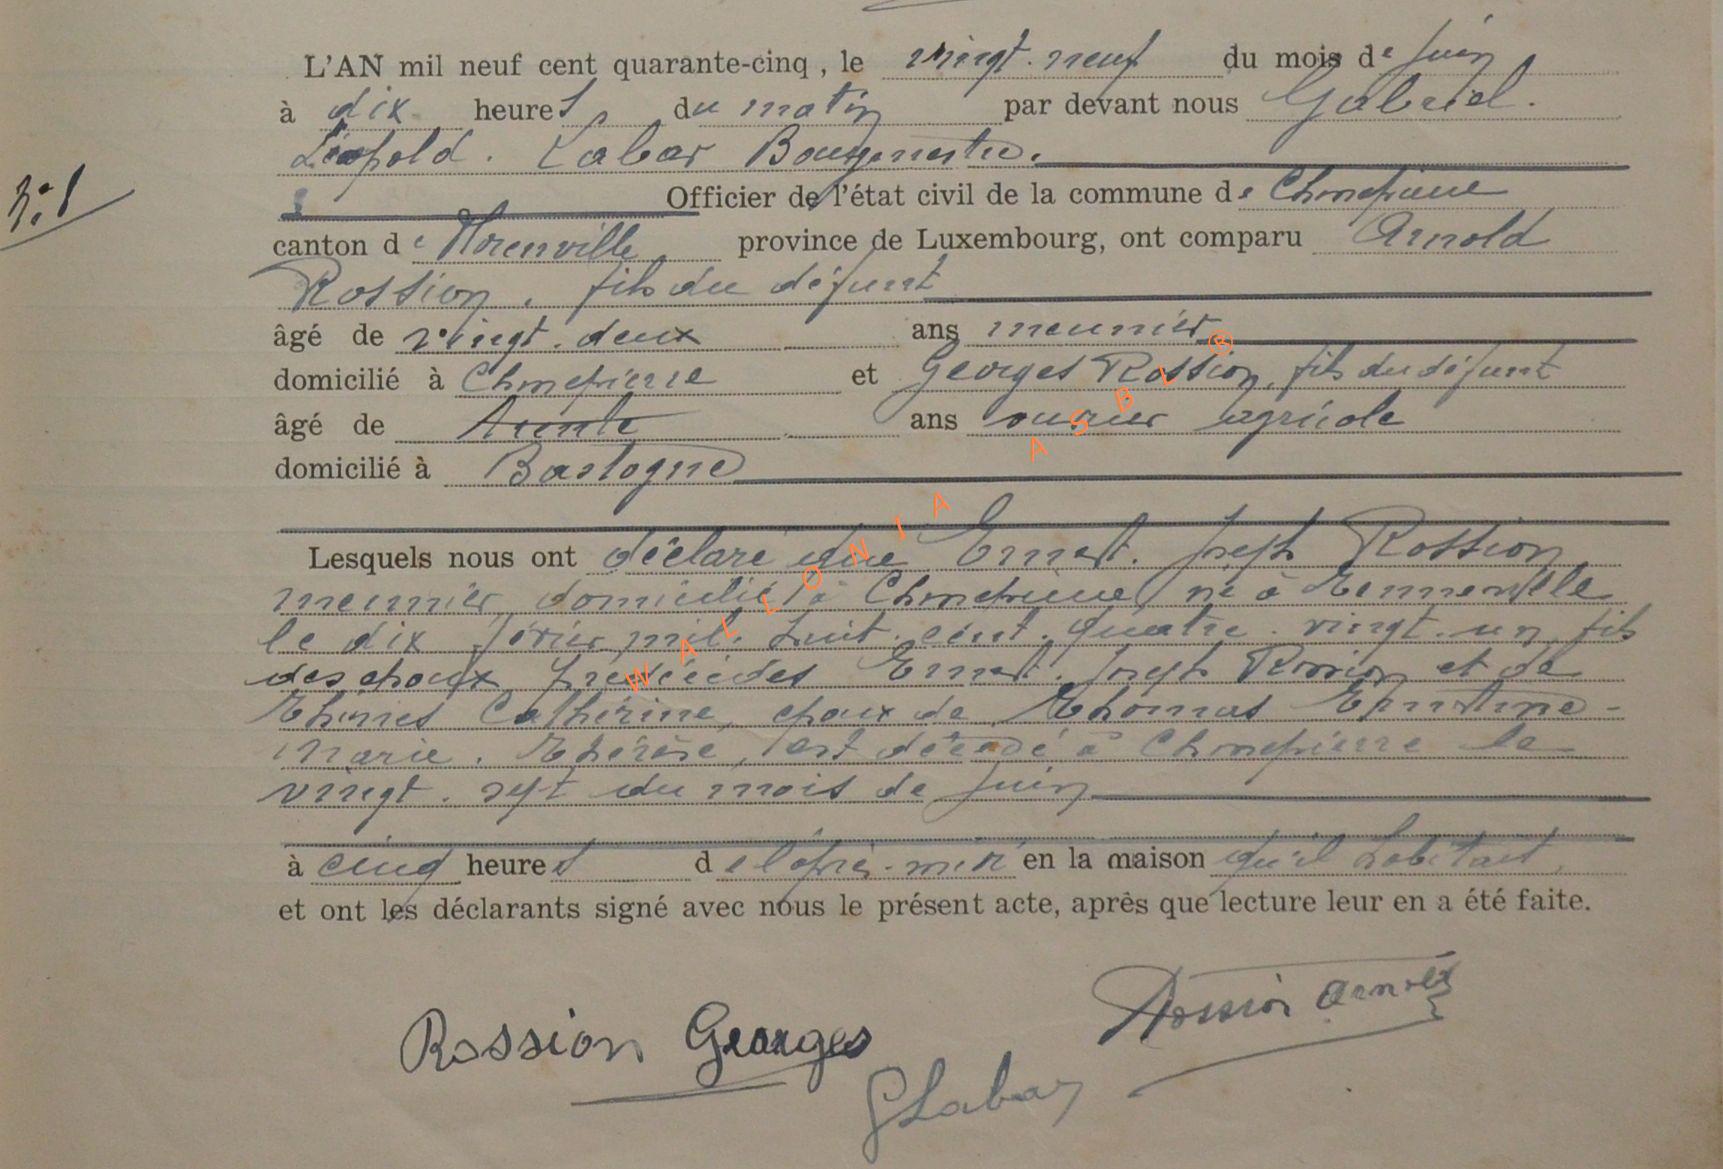 L'AN mil neuf cent quarante-cinq, le vingt-neuf du mois de juin
à dix heures, du matin par devant nous Gabriel.
Léopold. Labar Bourgmestre.
N°1
Officier de l'état civil de la commune de Chmepierre
canton de province de Luxembourg, ont comparu Arnold
Rossion, fils du défunt
âgé de vingt-deux ans meunier
domicilié à Chmepierre et Georges Rossion, fils du défunt
âgé de trente ans ouvrier agricole
domicilié à Bastogne
Lesquels nous ont déclaré que Ernest. Joseph Rossion
meunier, domicilié à Chmepierre né à
le dix février mil. huit. cent. quatre. vingt. un, fils
des époux Ernest. Joseph Rossion et de
Catherine, époux de Thomas Ernestine-
Marie. Thérèse, est décédé à Chmepierre le
vingt. sept du mois de juin
à cinq heures de l'après-midi en la maison qu'il habitait,
et ont les déclarants signé avec nous le présent acte, après que lecture leur en a été faite.
Rossion Arnold
Rossion Georges
GLabar
WALLONIA ASBL ®